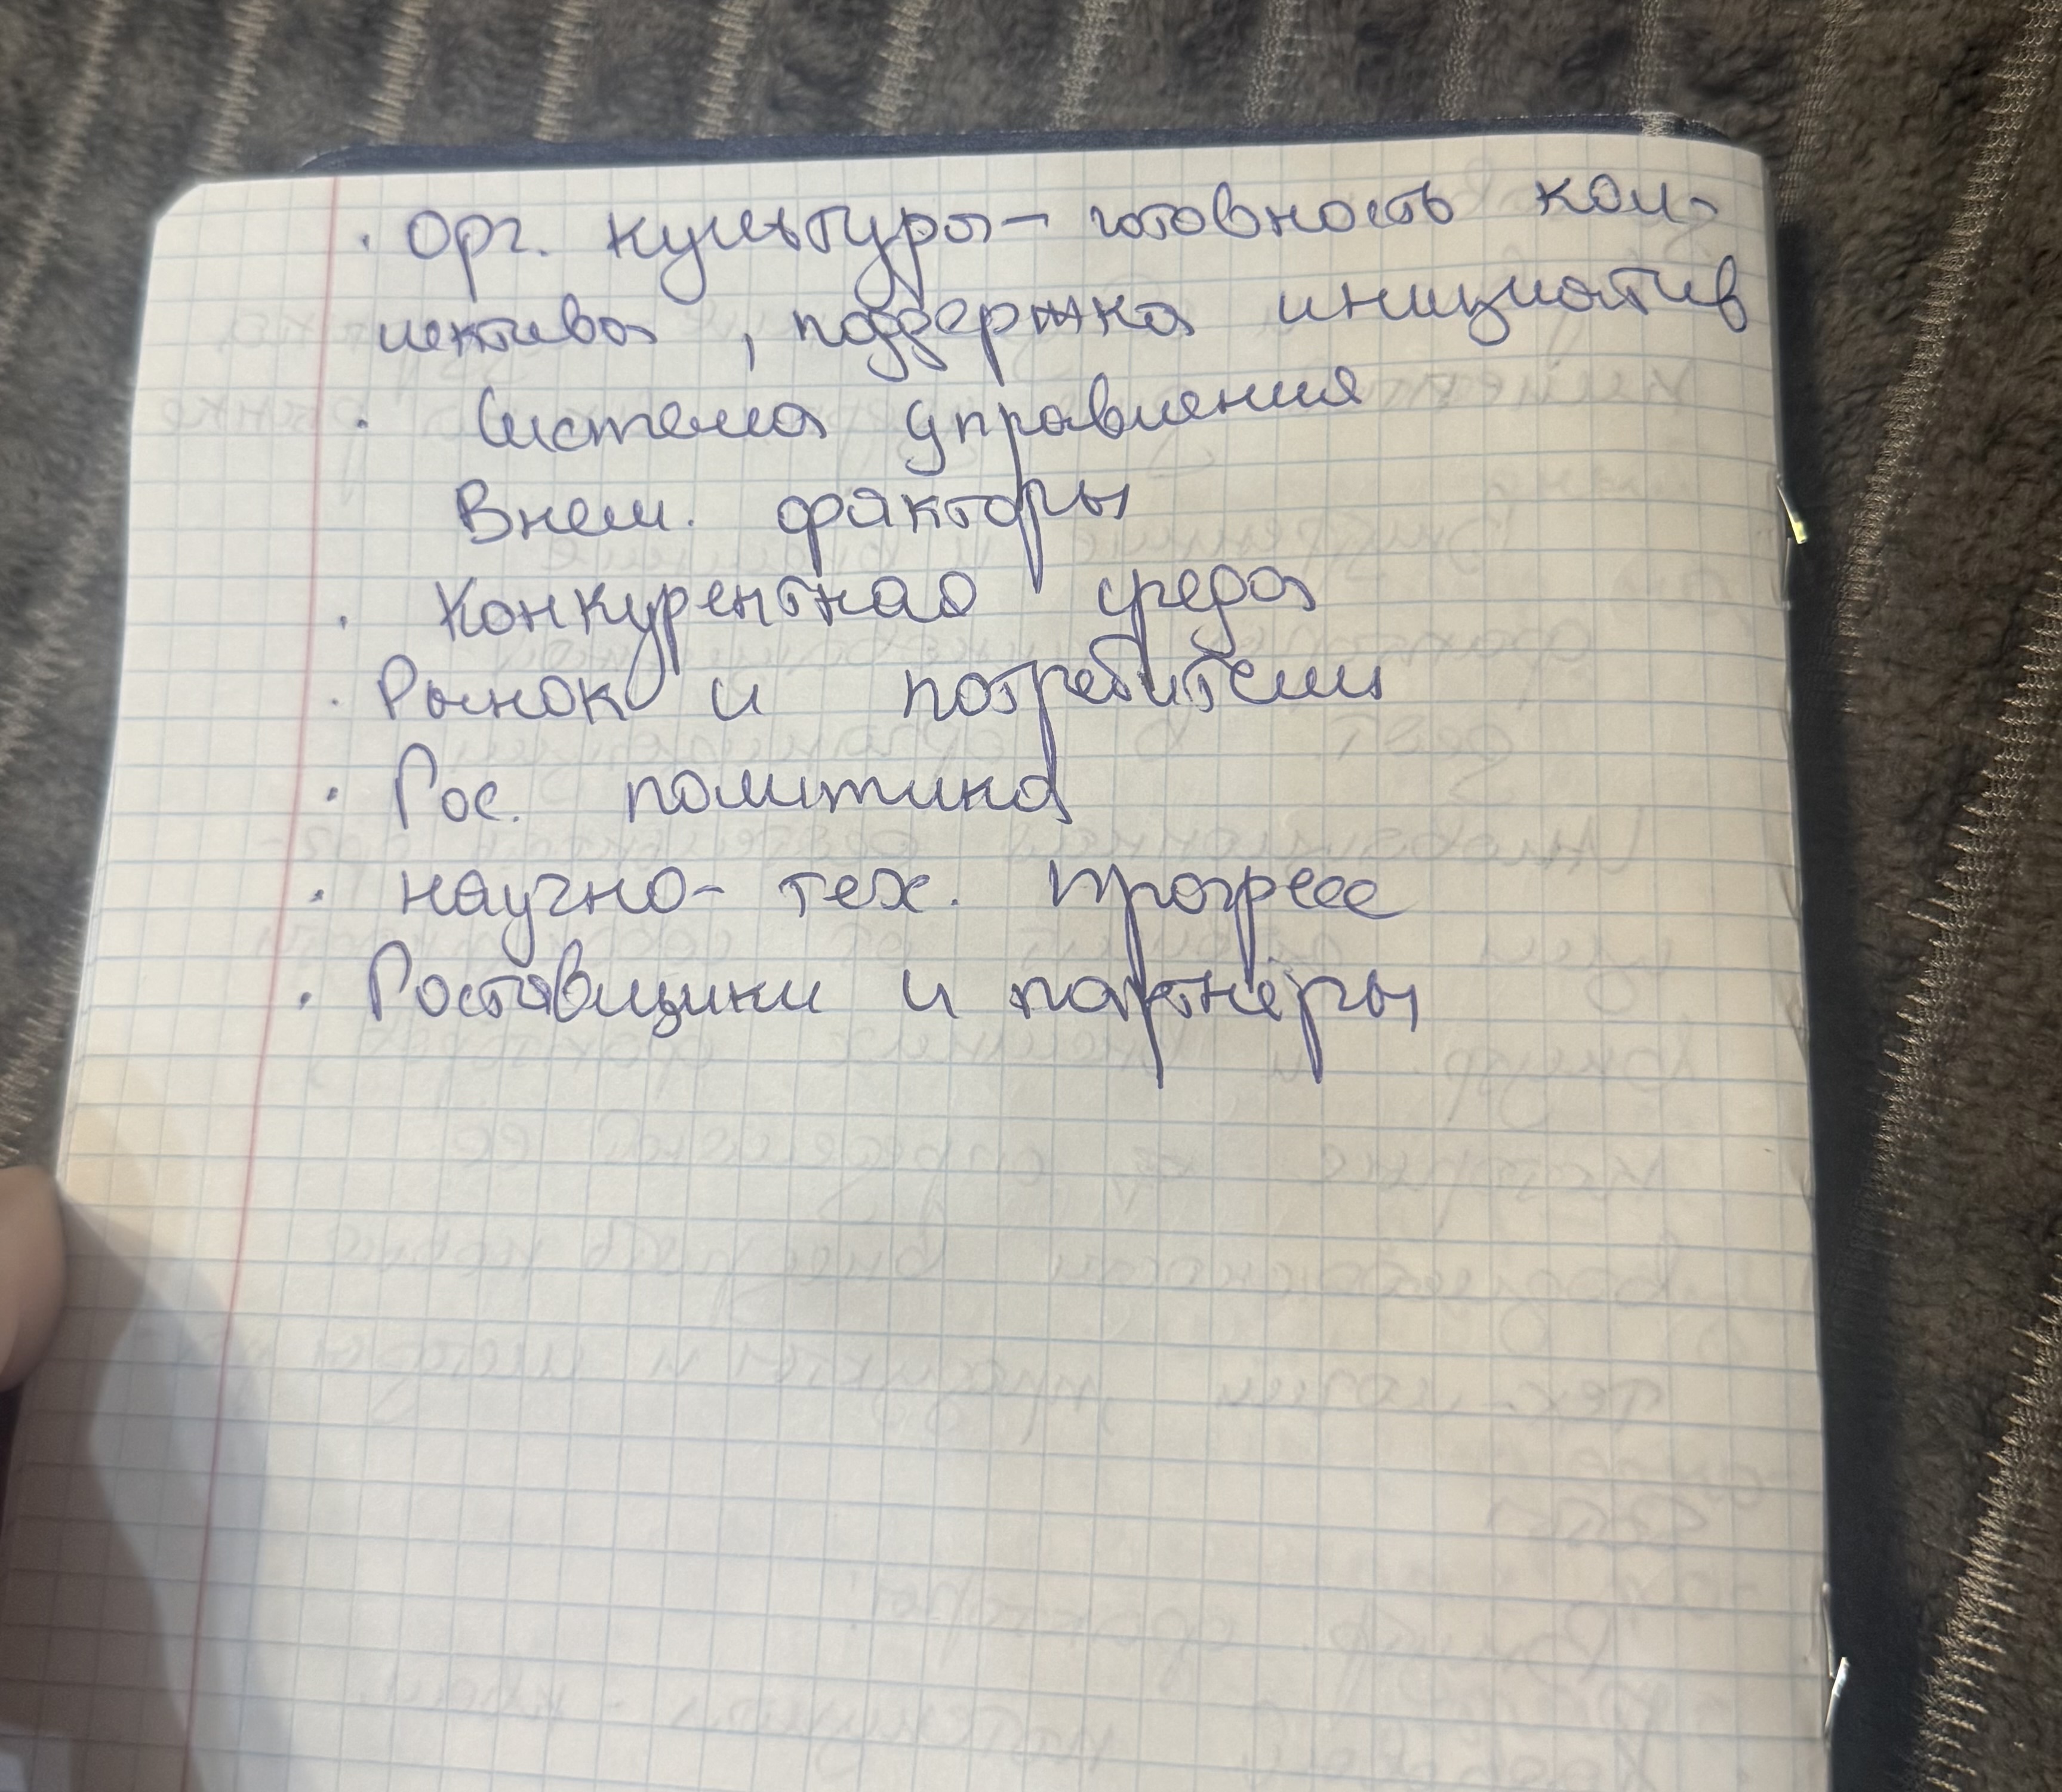 · Орг. культуры – готовность кол-
лектива, поддержка инициатив
· Система управления
Внеш. факторы
· Конкурентная среда
· Рынок и потребители
· Гос. политика
· научно- тех. прогресс
· Поставщики и партнёры